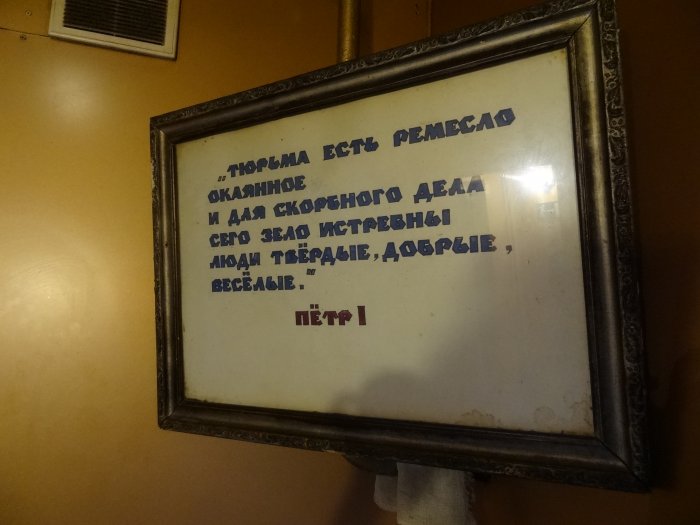 „ТЮРЬМА ЕСТЬ РЕМЕСЛО
ОКАЯННОЕ
И ДЛЯ СКОРБНОГО ДЕЛА
СЕГО ЗЕЛО ИСТРЕБНЫ
ЛЮДИ ТВЁРДЫЕ, ДОБРЫЕ,
ВЕСЁЛЫЕ."
ПЁТР I